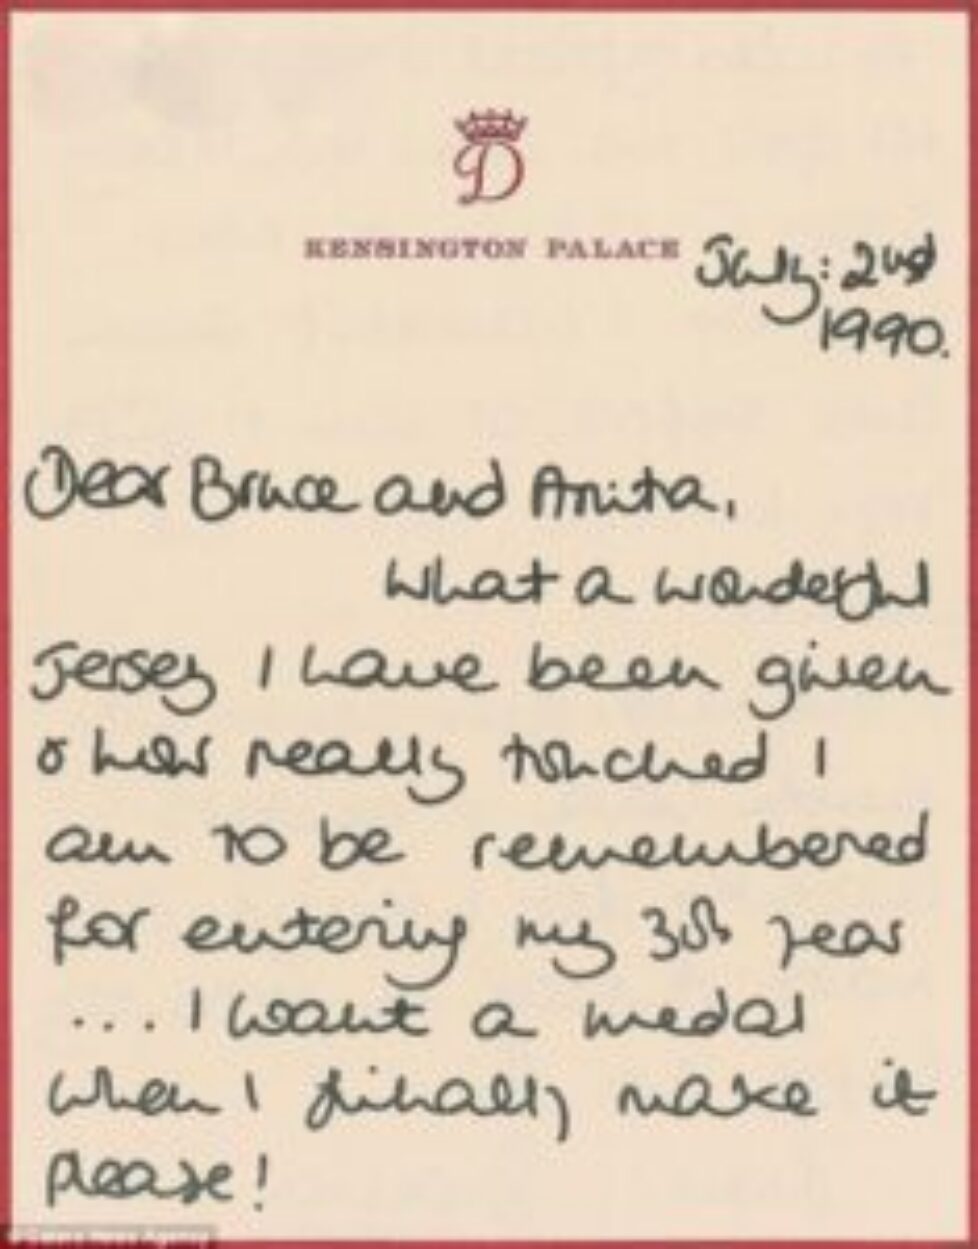 D
KENSINGTON PALACE
July: 2nd
1990.
Dear Bruce and Anita,
What a wonderful
Jersey I have been given
& how really touched I
am to be remembered
for entering my 30th year
... I want a medal
when I finally make it
please!